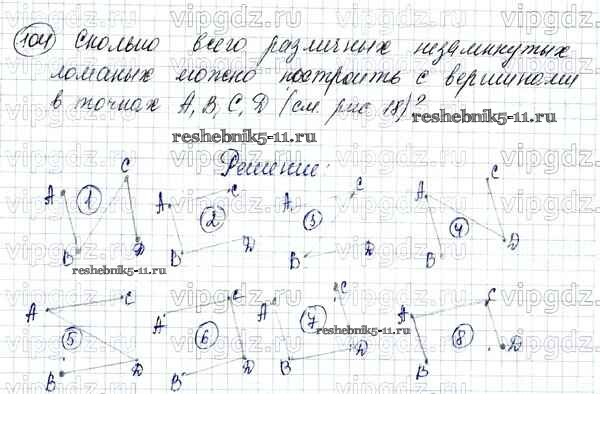 104 Сколько всего различных незамкнутых
ломаных можно построить с вершинами
в точках A, B, C, D (см. рис 18)?
reshebnik5-11.ru
Решение:
A B C D 1
A B C D 2
A B C D 3
A B C D 4
reshebnik5-11.ru
A B C D 5
A B C D 6
A B C D 7
A B C D 8
reshebnik5-11.ru
vipgdz.ru